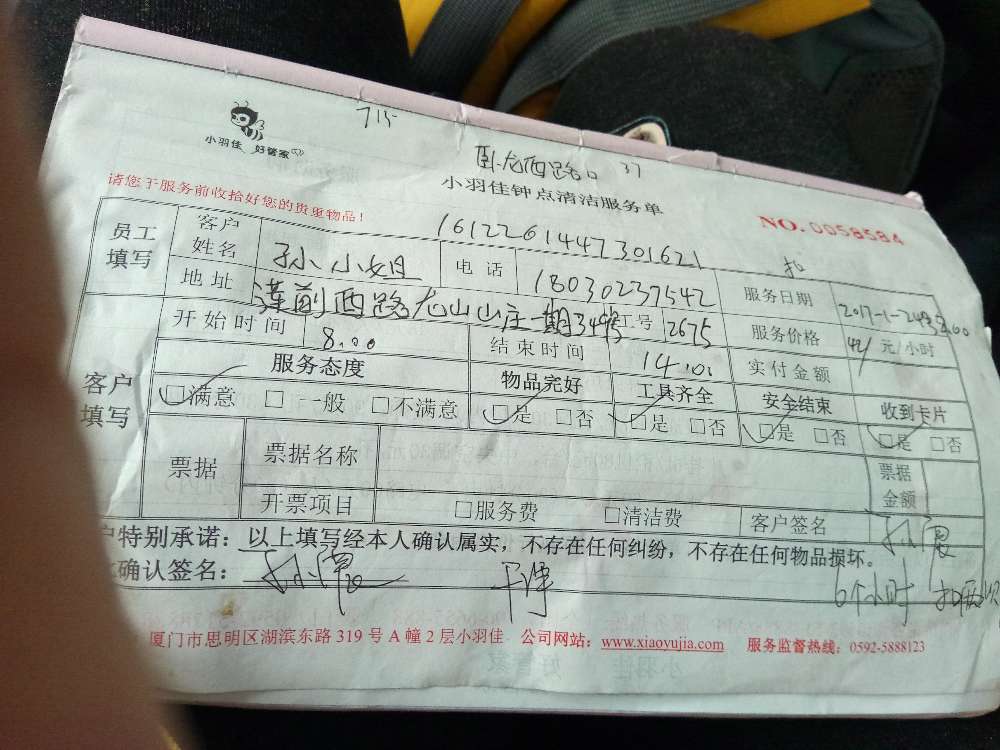 715
小羽佳 好管家
卧龙西路口 37
小羽佳钟点清洁服务单
请您于服务前收拾好您的贵重物品！
NO.0058584
1612261447301621
扣
员工填写 客户姓名 孙小姐 电话 18030237542 服务日期 2017-1-24
地址 莲前西路龙山山庄一期 工号 2675 服务价格 元/小时
开始时间 8.00 结束时间 14.00 实付金额
客户填写 服务态度 物品完好 工具齐全 安全结束 收到卡片
□满意 □一般 □不满意 □是 □否 □是 □否 □是 □否 □是 □否
票据 票据名称 票据金额
开票项目 □服务费 □清洁费 客户签名
户特别承诺：以上填写经本人确认属实，不存在任何纠纷，不存在任何物品损坏。
确认签名： 干净 6个小时
厦门市思明区湖滨东路 319 号 A 幢 2 层小羽佳 公司网站：www.xiaoyujia.com 服务监督热线：0592-5888123